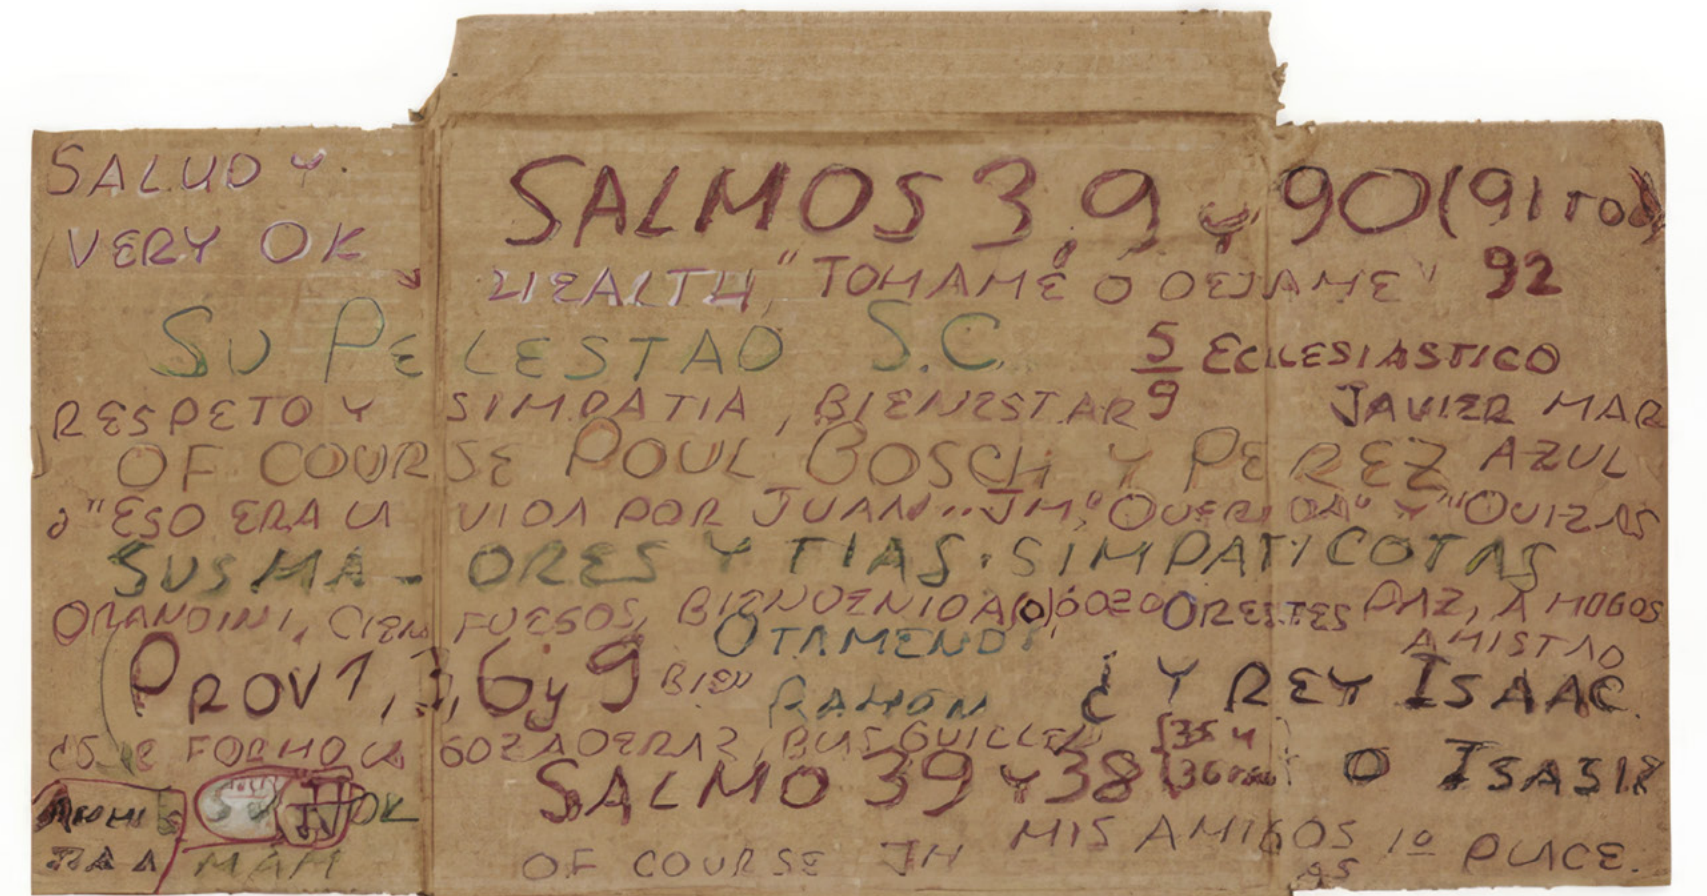 SALUD Y
SALMOS 3, 9 y 90 (91 TOD
VERY OK
HEALTH, "TOMAME O DEJAME" 92
SU PELESTAD S.C.
5/9 ECLLESIASTICO
RESPETO Y SIMPATIA, BIENESTAR JAVIER MAR
OF COURSE POUL BOSCH Y PEREZ AZUL
"ESO ERA LA VIDA POR JUAN... JM "QUERIDA" Y "QUIZAS
SUS MA-ORES Y TIAS SIMPATICOTAS
ORANDINI, CIENFUEGOS, ORESTES PAZ, AMOGOS
OTAMENDI AMISTAD
PROV 1, 3, 6 y 9 BIEN RAMON ¿Y REY ISAAC.
FORMO LA GOZADERA?, BUS GUILLEN
SALMO 39 Y 38 (35 Y 36 O ISASI?
OK
MAM
OF COURSE JH MIS AMIGOS 1º PLACE.
AS